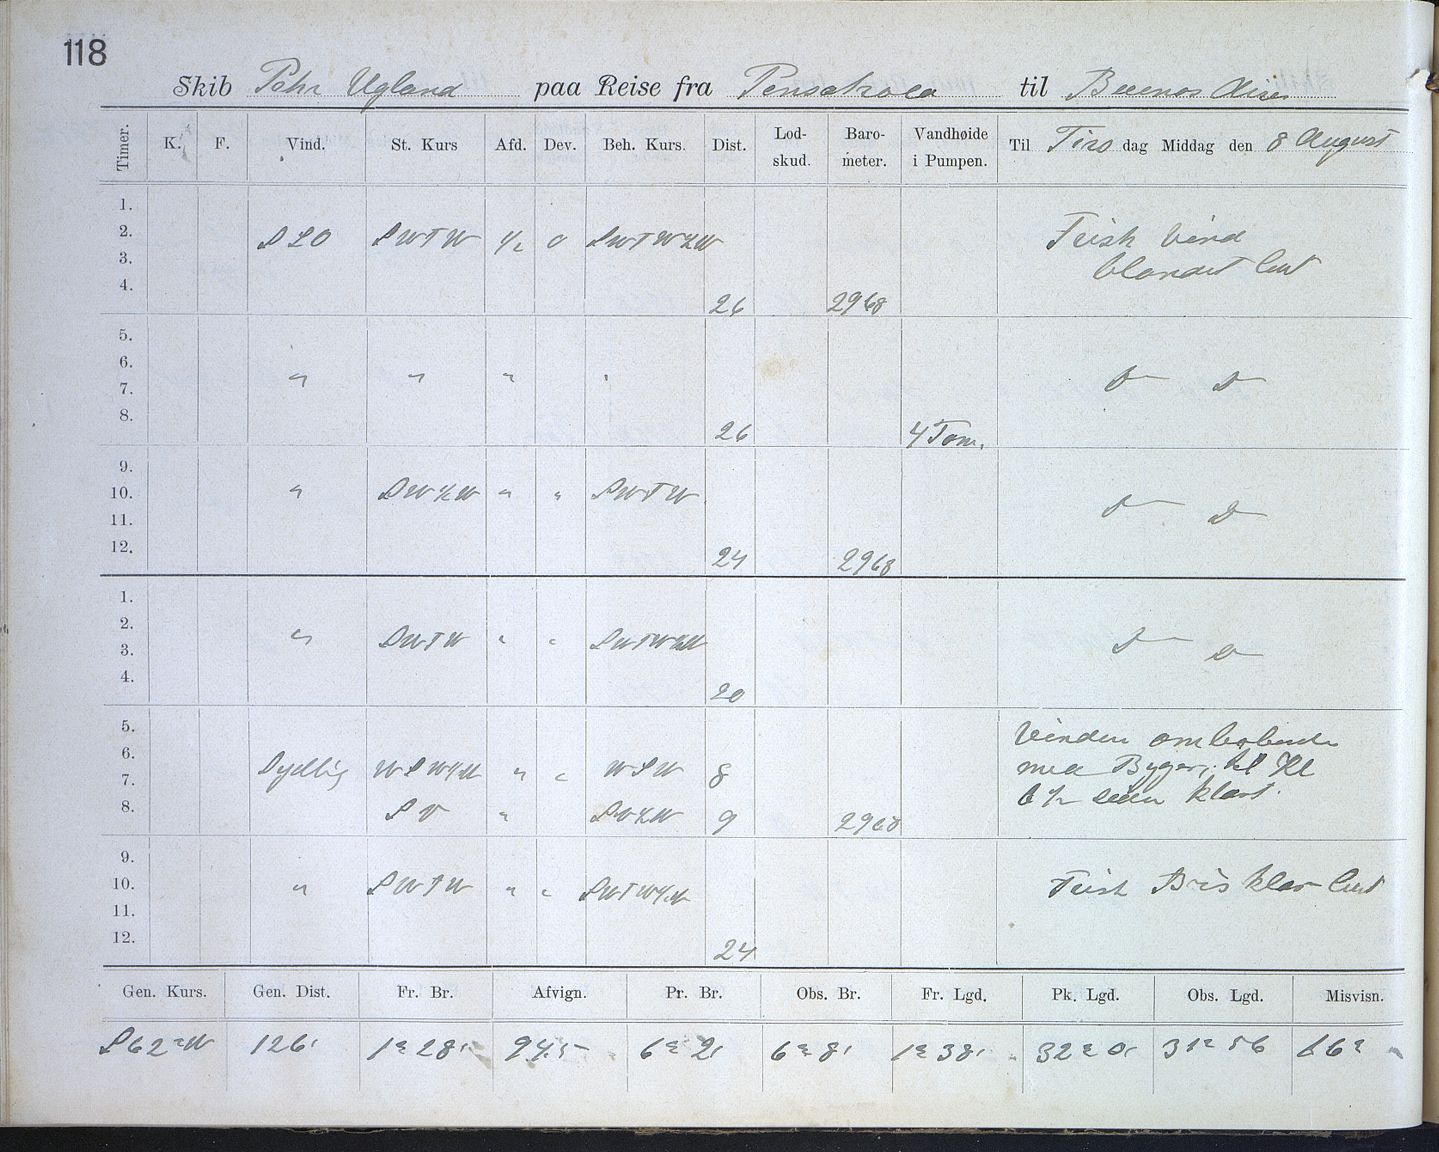 118
Skib Pehr Ugland paa Reise fra Pensakola til Buenos Aires
Timer. K. F. Vind. St. Kurs Afd. Dev. Beh. Kurs. Dist. Lod-skud. Baro-meter. Vandhøide i Pumpen. Til Tirs dag Middag den 8 August
1.
2. SSO SWTW 1/2 0 SWTW1/2W Frisk Vind
3. blandet luft
4. 26 2968
5.
6.
7. " " " " D D
8. 26 4 Tom.
9.
10. " SW1/2W " " SWTW D D
11.
12. 24 2968
1.
2.
3. " SWTW " " SWTW1/2W D D
4. 20
5. Vinden omløbende
6. Sydlig WSW1/2W " " WSW 8 med Byger, til Kl
7. 6 1/2 siden klart.
8. SW " SW1/2W 9 2968
9.
10. " SWTW " " SWTW1/2W Frisk Bris klar luft
11.
12. 24
Gen. Kurs. Gen. Dist. Fr. Br. Afvign. Pr. Br. Obs. Br. Fr. Lgd. Pk. Lgd. Obs. Lgd. Misvisn.
S62°W 126' 1° 28' 94.5 6° 2' 6° 8' 1° 38' 32° 0' 31° 56 16°